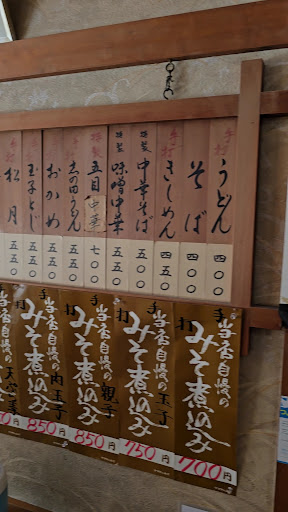 手打 うどん 四〇〇
手打 そば 四〇〇
手打 きしめん 四五〇
特製 中華そば 五〇〇
特製 味噌中華 五五〇
特製 五目中華 七〇〇
志の田うどん 五五〇
おかめ 五五〇
玉子とじ 五五〇
松月 五五〇
手打 当店自慢の みそ煮込み 700円
手打 当店自慢の 玉子 みそ煮込み 750円
手打 当店自慢の 親子 みそ煮込み 850円
手打 当店自慢の 肉玉子 みそ煮込み 850円
当店自慢の みそ煮込み 円